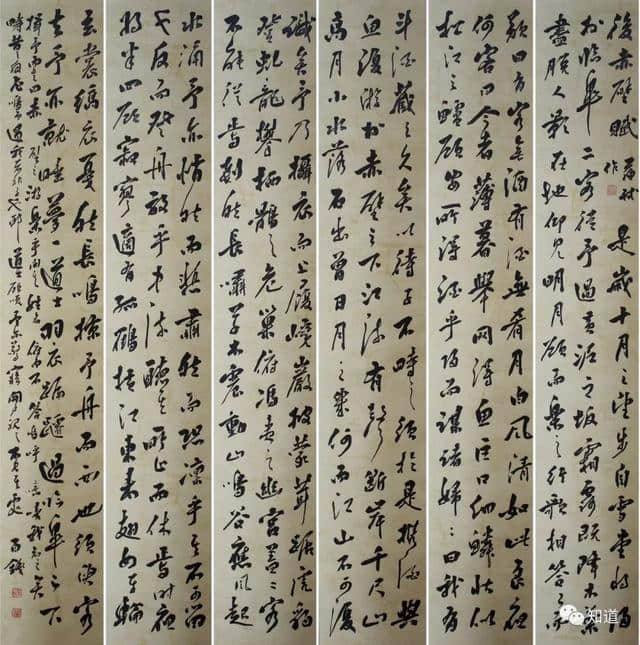 後赤壁賦
作
是歲十月之望步自雪堂將歸
於臨皋二客從予過黃泥之坂霜露既降木葉
盡脫人影在地仰見明月顧而樂之行歌相答已而
歎曰有客無酒有酒無肴月白風清如此良夜
何客曰今者薄暮舉網得魚巨口細鱗狀似
松江之鱸顧安所得酒乎歸而謀諸婦婦曰我有
斗酒藏之久矣以待子不時之須於是攜酒與
魚復游於赤壁之下江流有聲斷岸千尺山
高月小水落石出曾日月之幾何而江山不可復
識矣予乃攝衣而上履巉巖披蒙茸踞虎豹
登虬龍攀栖鶻之危巢俯馮夷之幽宮蓋二客
不能從焉劃然長嘯草木震動山鳴谷應風起
水涌予亦悄然而悲肅然而恐凜乎其不可留
也反而登舟放乎中流聽其所止而休焉時夜
將半四顧寂寥適有孤鶴橫江東來翅如車輪
玄裳縞衣戛然長鳴掠予舟而西也須臾客
去予亦就睡夢一道士羽衣蹁躚過臨皋之下
揖予而言曰赤壁之游樂乎問其姓名俛而不答嗚呼噫嘻我知之矣
疇昔之夜飛鳴而過我者非子也邪道士顧笑予亦驚寤開戶視之不見其處
知道